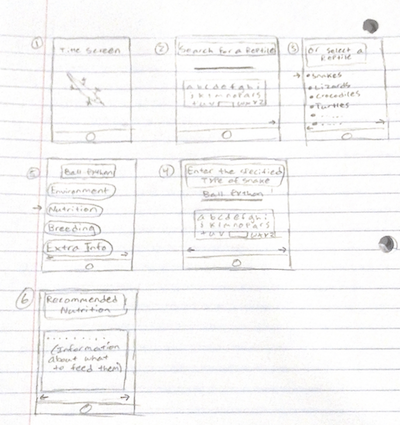 1
Title Screen
2
Search for a Reptile
a b c d e f g h i
j k l m n o p q r s
t u v w x y z
3
Or Select a
Reptile
→ •Snakes
•Lizards
•Crocodiles
•Turtles
5
Ball Python
Environment
→ Nutrition
Breeding
Extra Info
4
Enter the specified
Type of snake
Ball Python
a b c d e f g h i
6
Recommended
Nutrition
(Information
about what
to feed them)